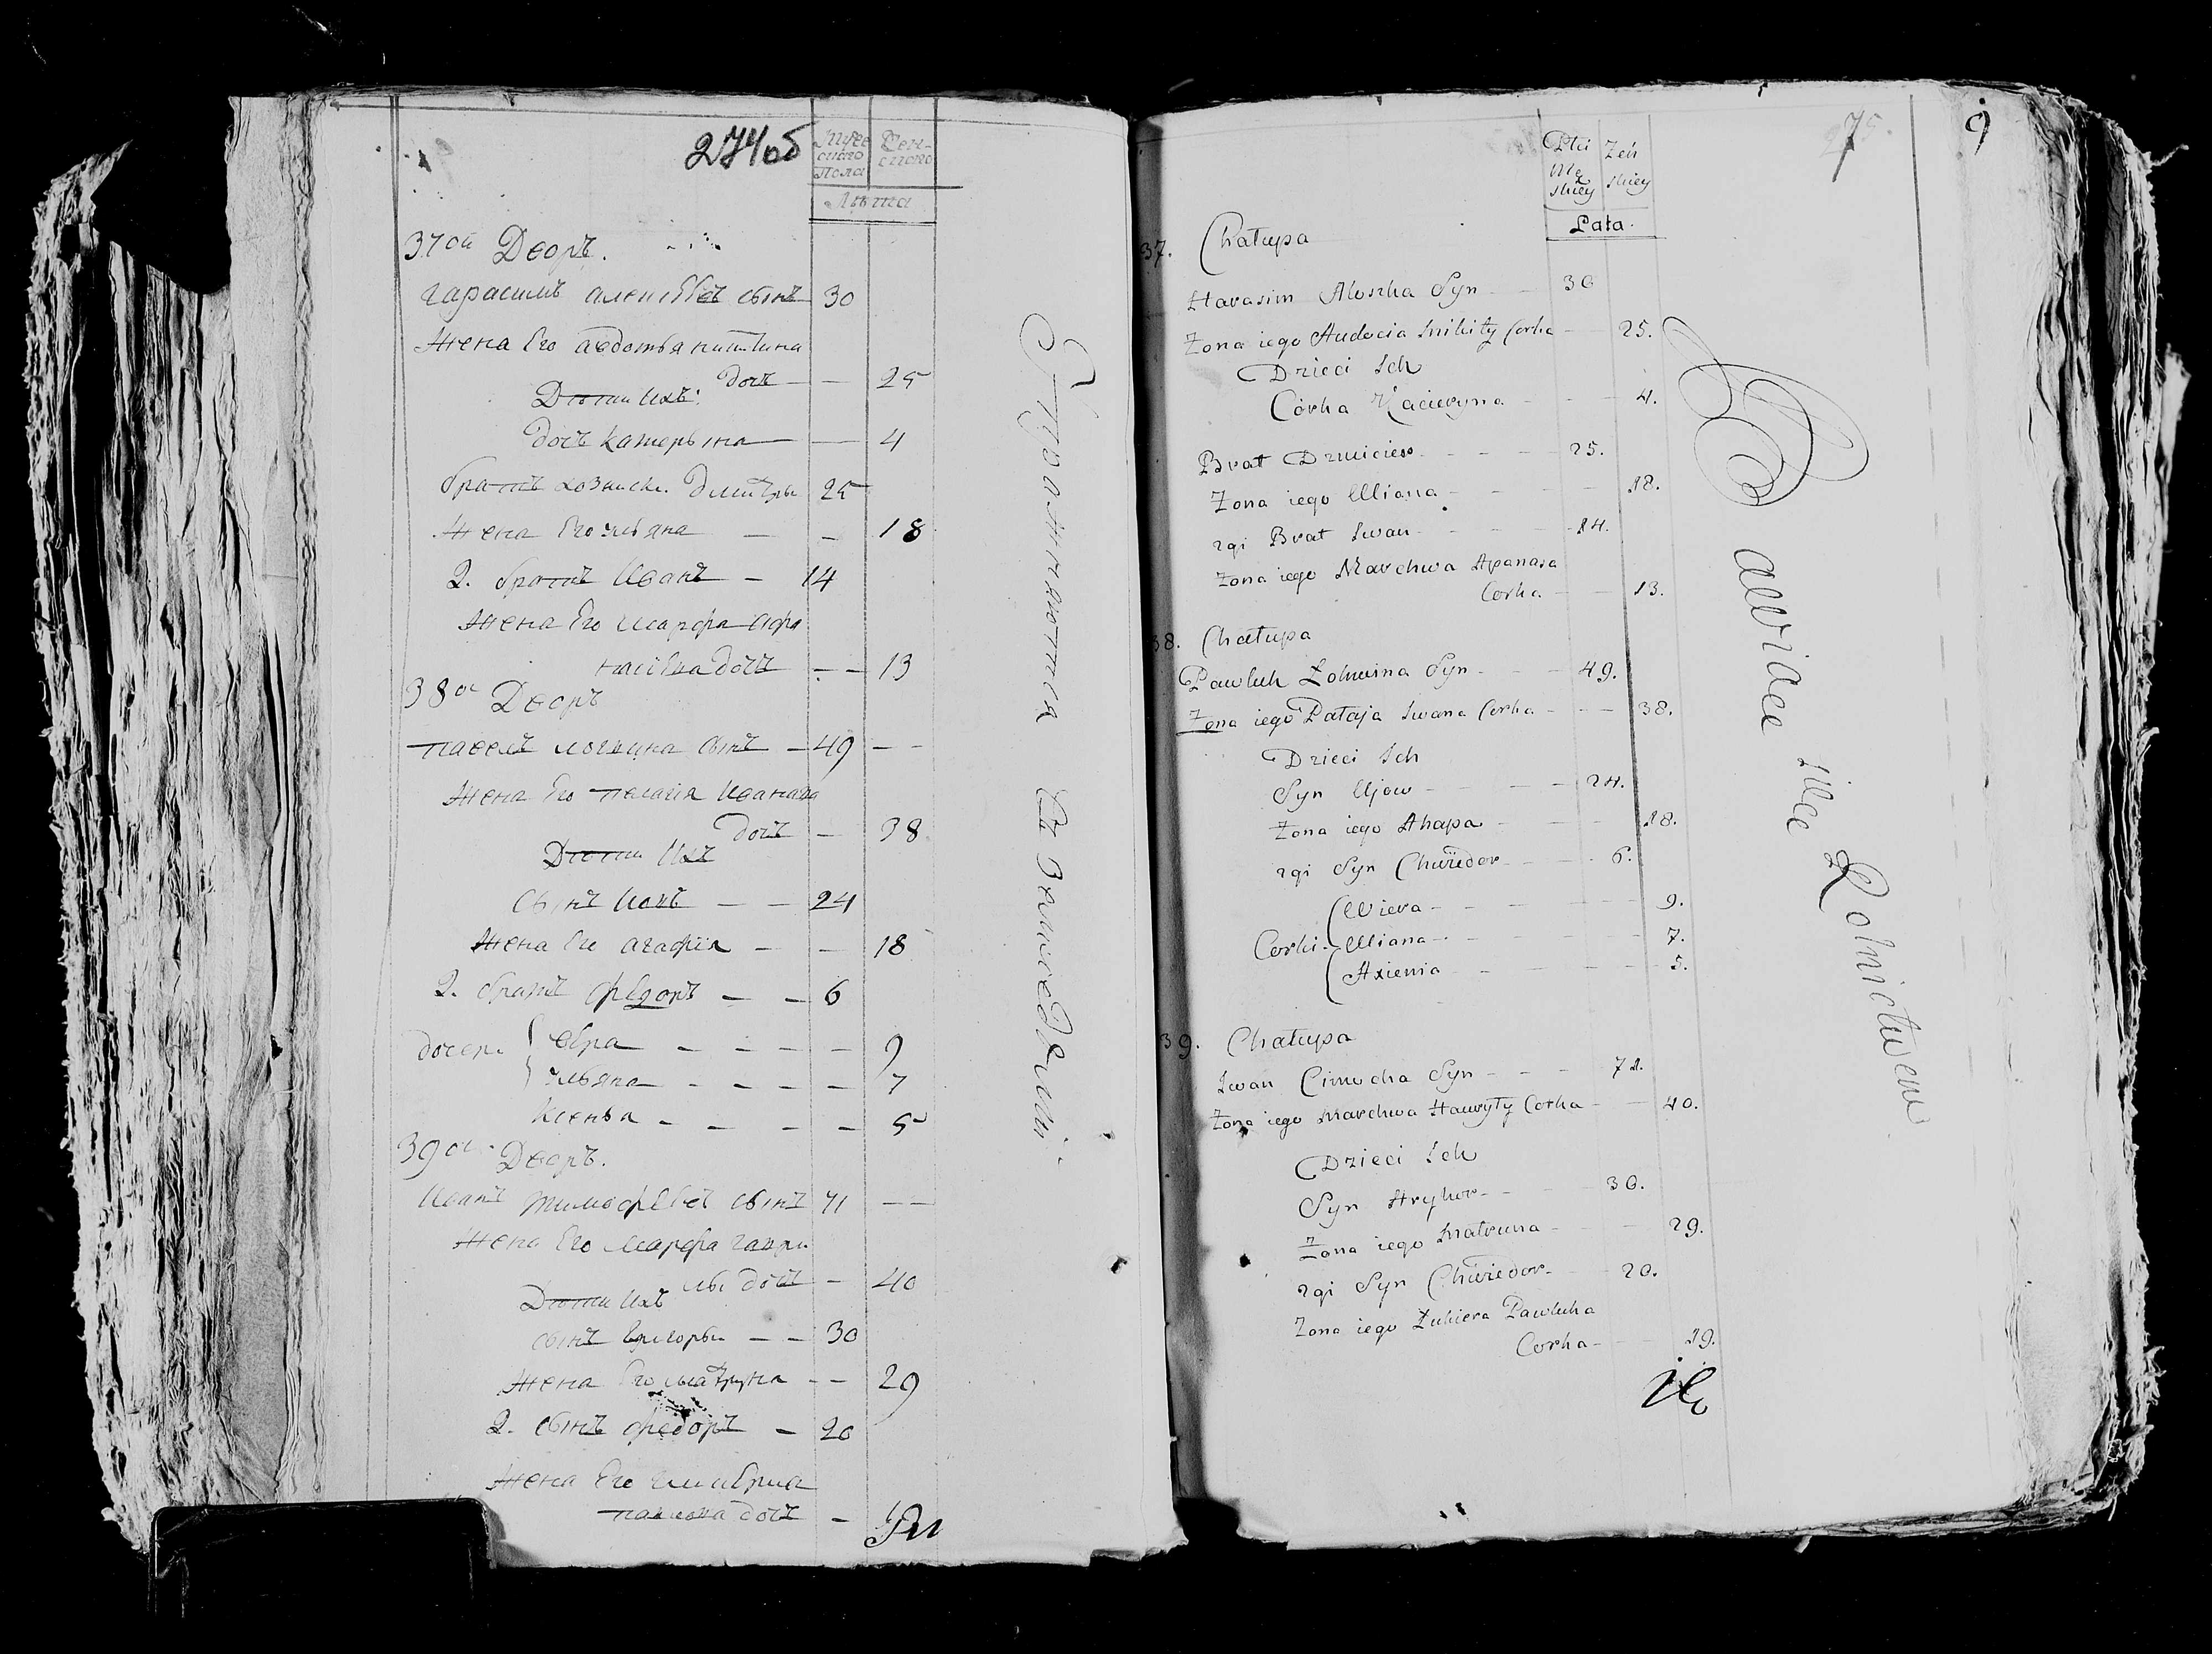 274об
Мужескаго Пола
Женскаго
Лѣта
37ой Дворъ.
гарасимъ алексѣевъ сынъ 30
Жена Его авдотья никитина
дочь — — 25
Дѣти Ихъ:
дочь катерына — — 4
братъ хозяиск. дмитры 25
Жена Его ульяна — — 18
2. братъ Иванъ — 14
Жена Его марфа афа
насѣва дочь — — 13
38ой Дворъ
павелъ логвина сынъ — 49 — —
Жена Его пелагія Иванова
дочь — 38
Дѣти Ихъ
сынъ Іовъ — — 24
Жена Его агафія — — 18
2. братъ фѣдоръ — — 6
дочери { вѣра — — — — — 9
ульяна — — — — — 7
Ксенья — — — — — 5
39ой Дворъ.
Иванъ тимофѣевъ сынъ 71 — —
Жена Его марфа гаври
лы дочь — 40
Дѣти Ихъ
сынъ григорьи — — 30
Жена Его матруна — — 29
2. сынъ федоръ — 20
Жена Его
павлова дочь —
Упражняются Въ Земледѣлии
75.
9
Płci Męskiey
Żeńskiey
Lata.
37. Chałupa
Harasim Aloszka Syn — 30
Zona iego Audocia Mikity Corka — 25.
Dzieci Ich
Córka Kacieryna - - - 4.
Brat Dzmicier - - - - 25.
Zona iego Ulliana - - - - 18.
2gi Brat Iwan - - - - 14.
Zona iego Marchwa Apanasa
Corka - - 13.
38. Chałupa
Pawluk Łohwina Syn - - - 49.
Zona iego Pałaja Iwana Corka - - - 38.
Dzieci Ich
Syn Ujow - - - - 24.
Zona iego Ahapa - - - 18.
2gi Syn Chwiedor - - - 6.
(Wiera - - - - - 9.
Corki - Ulliana - - - - - 7.
(Axienia - - - - - 5.
39. Chałupa
Iwan Cimocha Syn - - - 71.
Zona iego Marchwa Hawryły Corka - - 40.
Dzieci Ich
Syn Hryhor - - - - 30.
Zona iego Matruna - - - 29.
2gi Syn Chwiedor - - 20.
Zona iego Łukiera Pawluka
Corka - - 19.
Bawiące się Rolnictwem